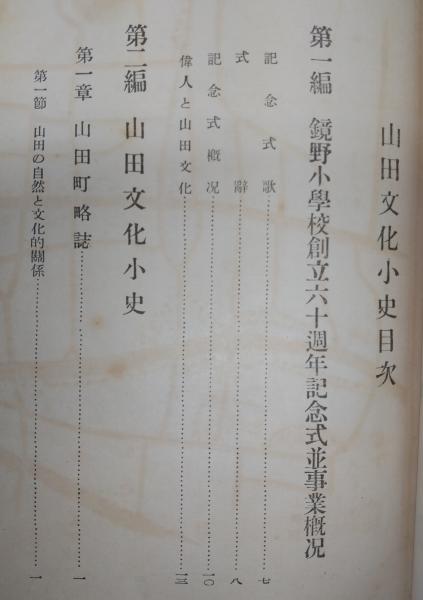 山田文化小史目次
第一編 鏡野小學校創立六十週年記念式並事業概况
記念式歌……七
式辭……八
記念式概况……一〇
偉人と山田文化……一三
第二編 山田文化小史
第一章 山田町略誌……一
第一節 山田の自然と文化的關係……一